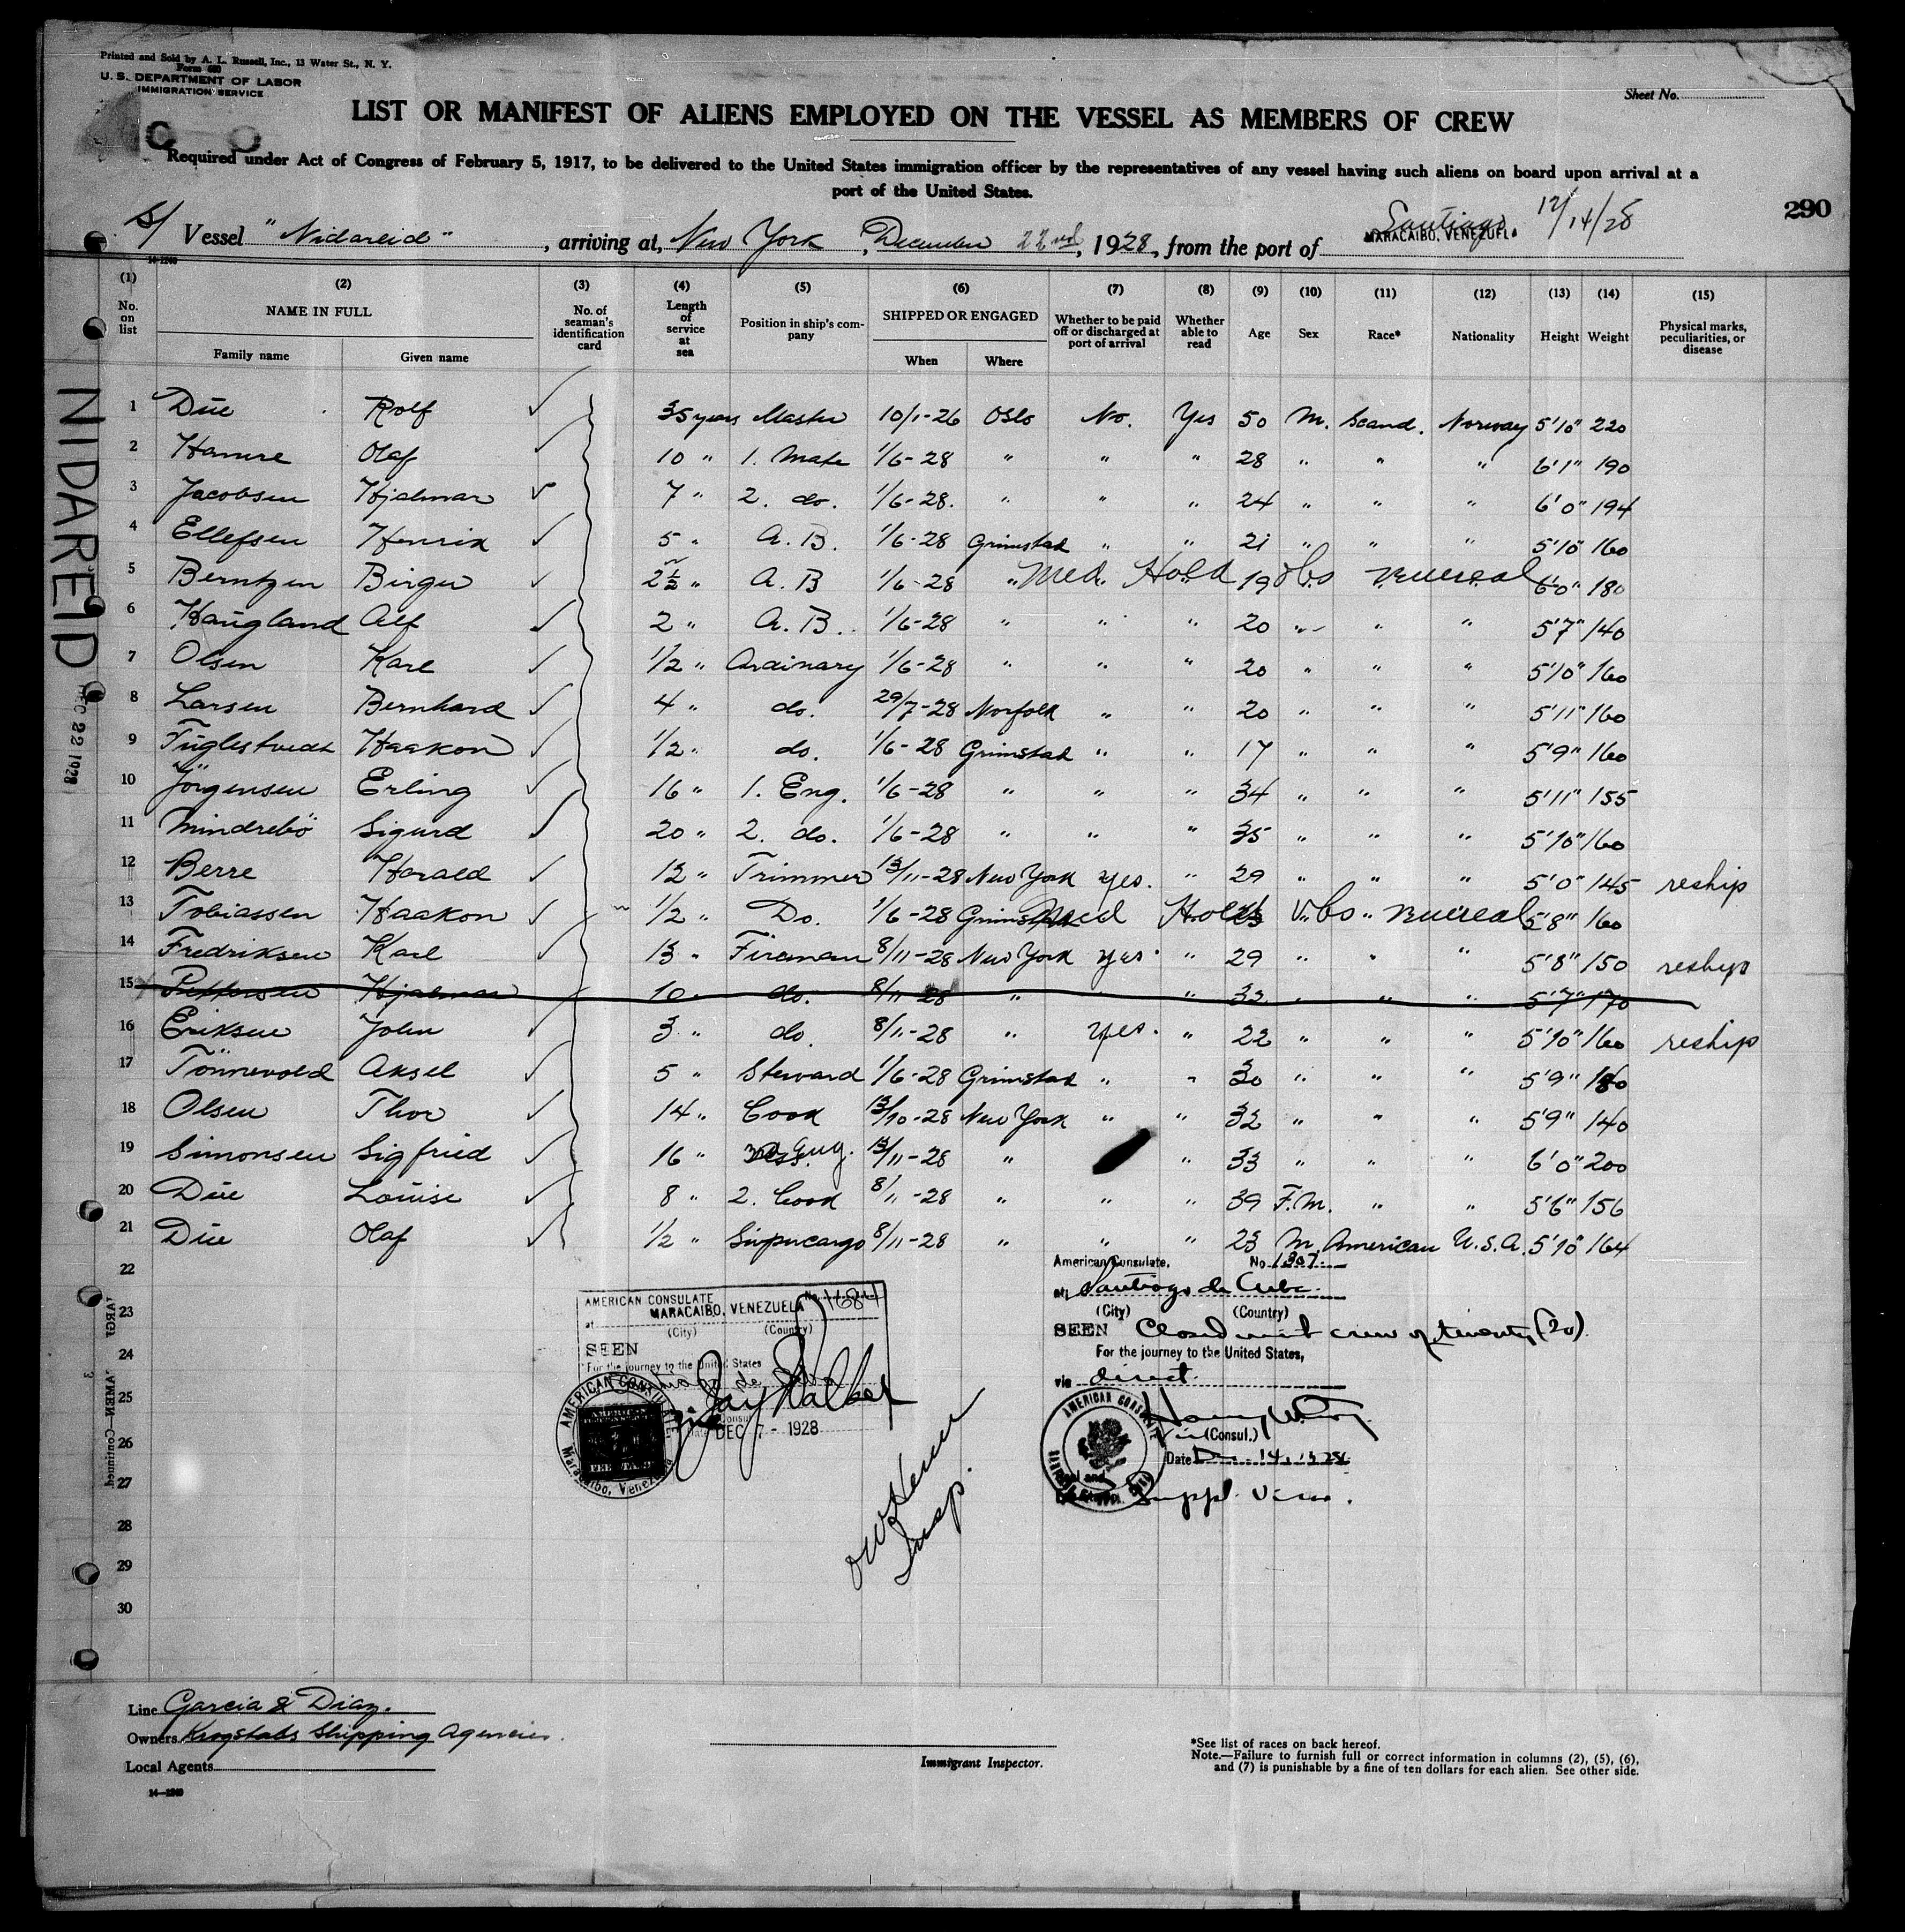 Printed and Sold by A. L. Russell, Inc., 13 Water St., N. Y.
Form 680
U. S. DEPARTMENT OF LABOR
IMMIGRATION SERVICE
Sheet No.
LIST OR MANIFEST OF ALIENS EMPLOYED ON THE VESSEL AS MEMBERS OF CREW
Required under Act of Congress of February 5, 1917, to be delivered to the United States immigration officer by the representatives of any vessel having such aliens on board upon arrival at a
port of the United States.
290
S/ Vessel "Nidareid", arriving at, New York, December 22nd, 1928, from the port of MARACAIBO, VENEZUEL. Santiago 12/14/28
14-1240
(1) (2) (3) (4) (5) (6) (7) (8) (9) (10) (11) (12) (13) (14) (15)
No. on list NAME IN FULL Family name Given name No. of seaman's identification card Length of service at sea Position in ship's company SHIPPED OR ENGAGED When Where Whether to be paid off or discharged at port of arrival Whether able to read Age Sex Race* Nationality Height Weight Physical marks, peculiarities, or disease
NIDAREID
DEC 22 1928
1 Düe Rolf ✓ 35 years Master 10/1-26 Oslo No. Yes 50 M. Scand. Norway 5'10" 220
2 Hamre Olaf ✓ 10 " 1. Mate 1/6-28 " " " 28 " " " 6'1" 190
3 Jacobsen Hjalmar ✓ 7 " 2. do. 1/6-28. " " " 24 " " " 6'0" 194
4 Ellefsen Henrik ✓ 5 " A. B. 1/6-28 Grimstad " " 21 " " " 5'10" 160
5 Berntzen Birger ✓ 2½ " A. B 1/6-28 " Med. Hold 19 obs venereal 6'0" 180
6 Haugland Alf ✓ 2 " A. B. 1/6-28 " " " 20 " " " 5'7" 140
7 Olsen Karl ✓ 1/2 " Ordinary 1/6-28 " " " 20 " " " 5'10" 160
8 Larsen Bernhard ✓ 4 " do. 29/7-28 Norfolk " " 20 " " " 5'11" 160
9 Fuglestvedt Haakon ✓ 1/2 " do. 1/6-28 Grimstad " " 17 " " " 5'9" 160
10 Jörgensen Erling ✓ 16 " 1. Eng. 1/6-28 " " " 34 " " " 5'11" 155
11 Mindrebö Sigurd ✓ 20 " 2. do. 1/6-28 " " " 35 " " " 5'10" 160
12 Berre Harald ✓ 12 " Trimmer 13/11-28 New York yes. " 29 " " " 5'0" 145 reship
13 Tobiassen Haakon ✓ 1/2 " Do. 1/6-28 Grimstad Med Hold obs venereal 5'8" 160
14 Fredriksen Karl ✓ 13 " Fireman 8/11-28 New York yes. " 29 " " " 5'8" 150 reship
15 Pettersen Hjalmar 10 " do. 8/11 28 " " " 33 " " " 5'7" 170
16 Eriksen John ✓ 3 " do. 8/11-28 " yes. " 22 " " " 5'10" 160 reship
17 Tönnevold Aksel ✓ 5 " Steward 1/6-28 Grimstad " " 30 " " " 5'9" 180
18 Olsen Thor ✓ 14 " Cook 13/10-28 New York " " 32 " " " 5'9" 140
19 Simonsen Sigfried ✓ 16 " Eng. 13/11-28 " " 33 " " " 6'0" 200
20 Düe Louise ✓ 8 " 2. Cook 8/11-28 " " " 39 F.M. " " 5'6" 156
21 Düe Olaf ✓ 1/2 " Supercargo 8/11-28 " " " 23 M. American U.S.A. 5'10" 164
22
23
24
25
26
27
28
29
30
AMERICAN CONSULATE No. 1684
at MARACAIBO, VENEZUELA
(City) (Country)
SEEN
For the journey to the United States
Jay Walker
Consul
Date DEC 7 - 1928
AMERICAN CONSULATE
Maracaibo, Venezuela
American Consulate, No. 1307
at Santiago de Cuba
(City) (Country)
SEEN Closed with crew of twenty (20)
For the journey to the United States,
via direct
(Consul.)
Date Dec. 14, 1928
Suppl. Visa.
AMERICAN CONSULATE
Insp.
Line Garcia & Diaz.
Owners Krogstads Shipping Agencies.
Local Agents
14-1240
Immigrant Inspector.
*See list of races on back hereof.
Note.—Failure to furnish full or correct information in columns (2), (5), (6),
and (7) is punishable by a fine of ten dollars for each alien. See other side.